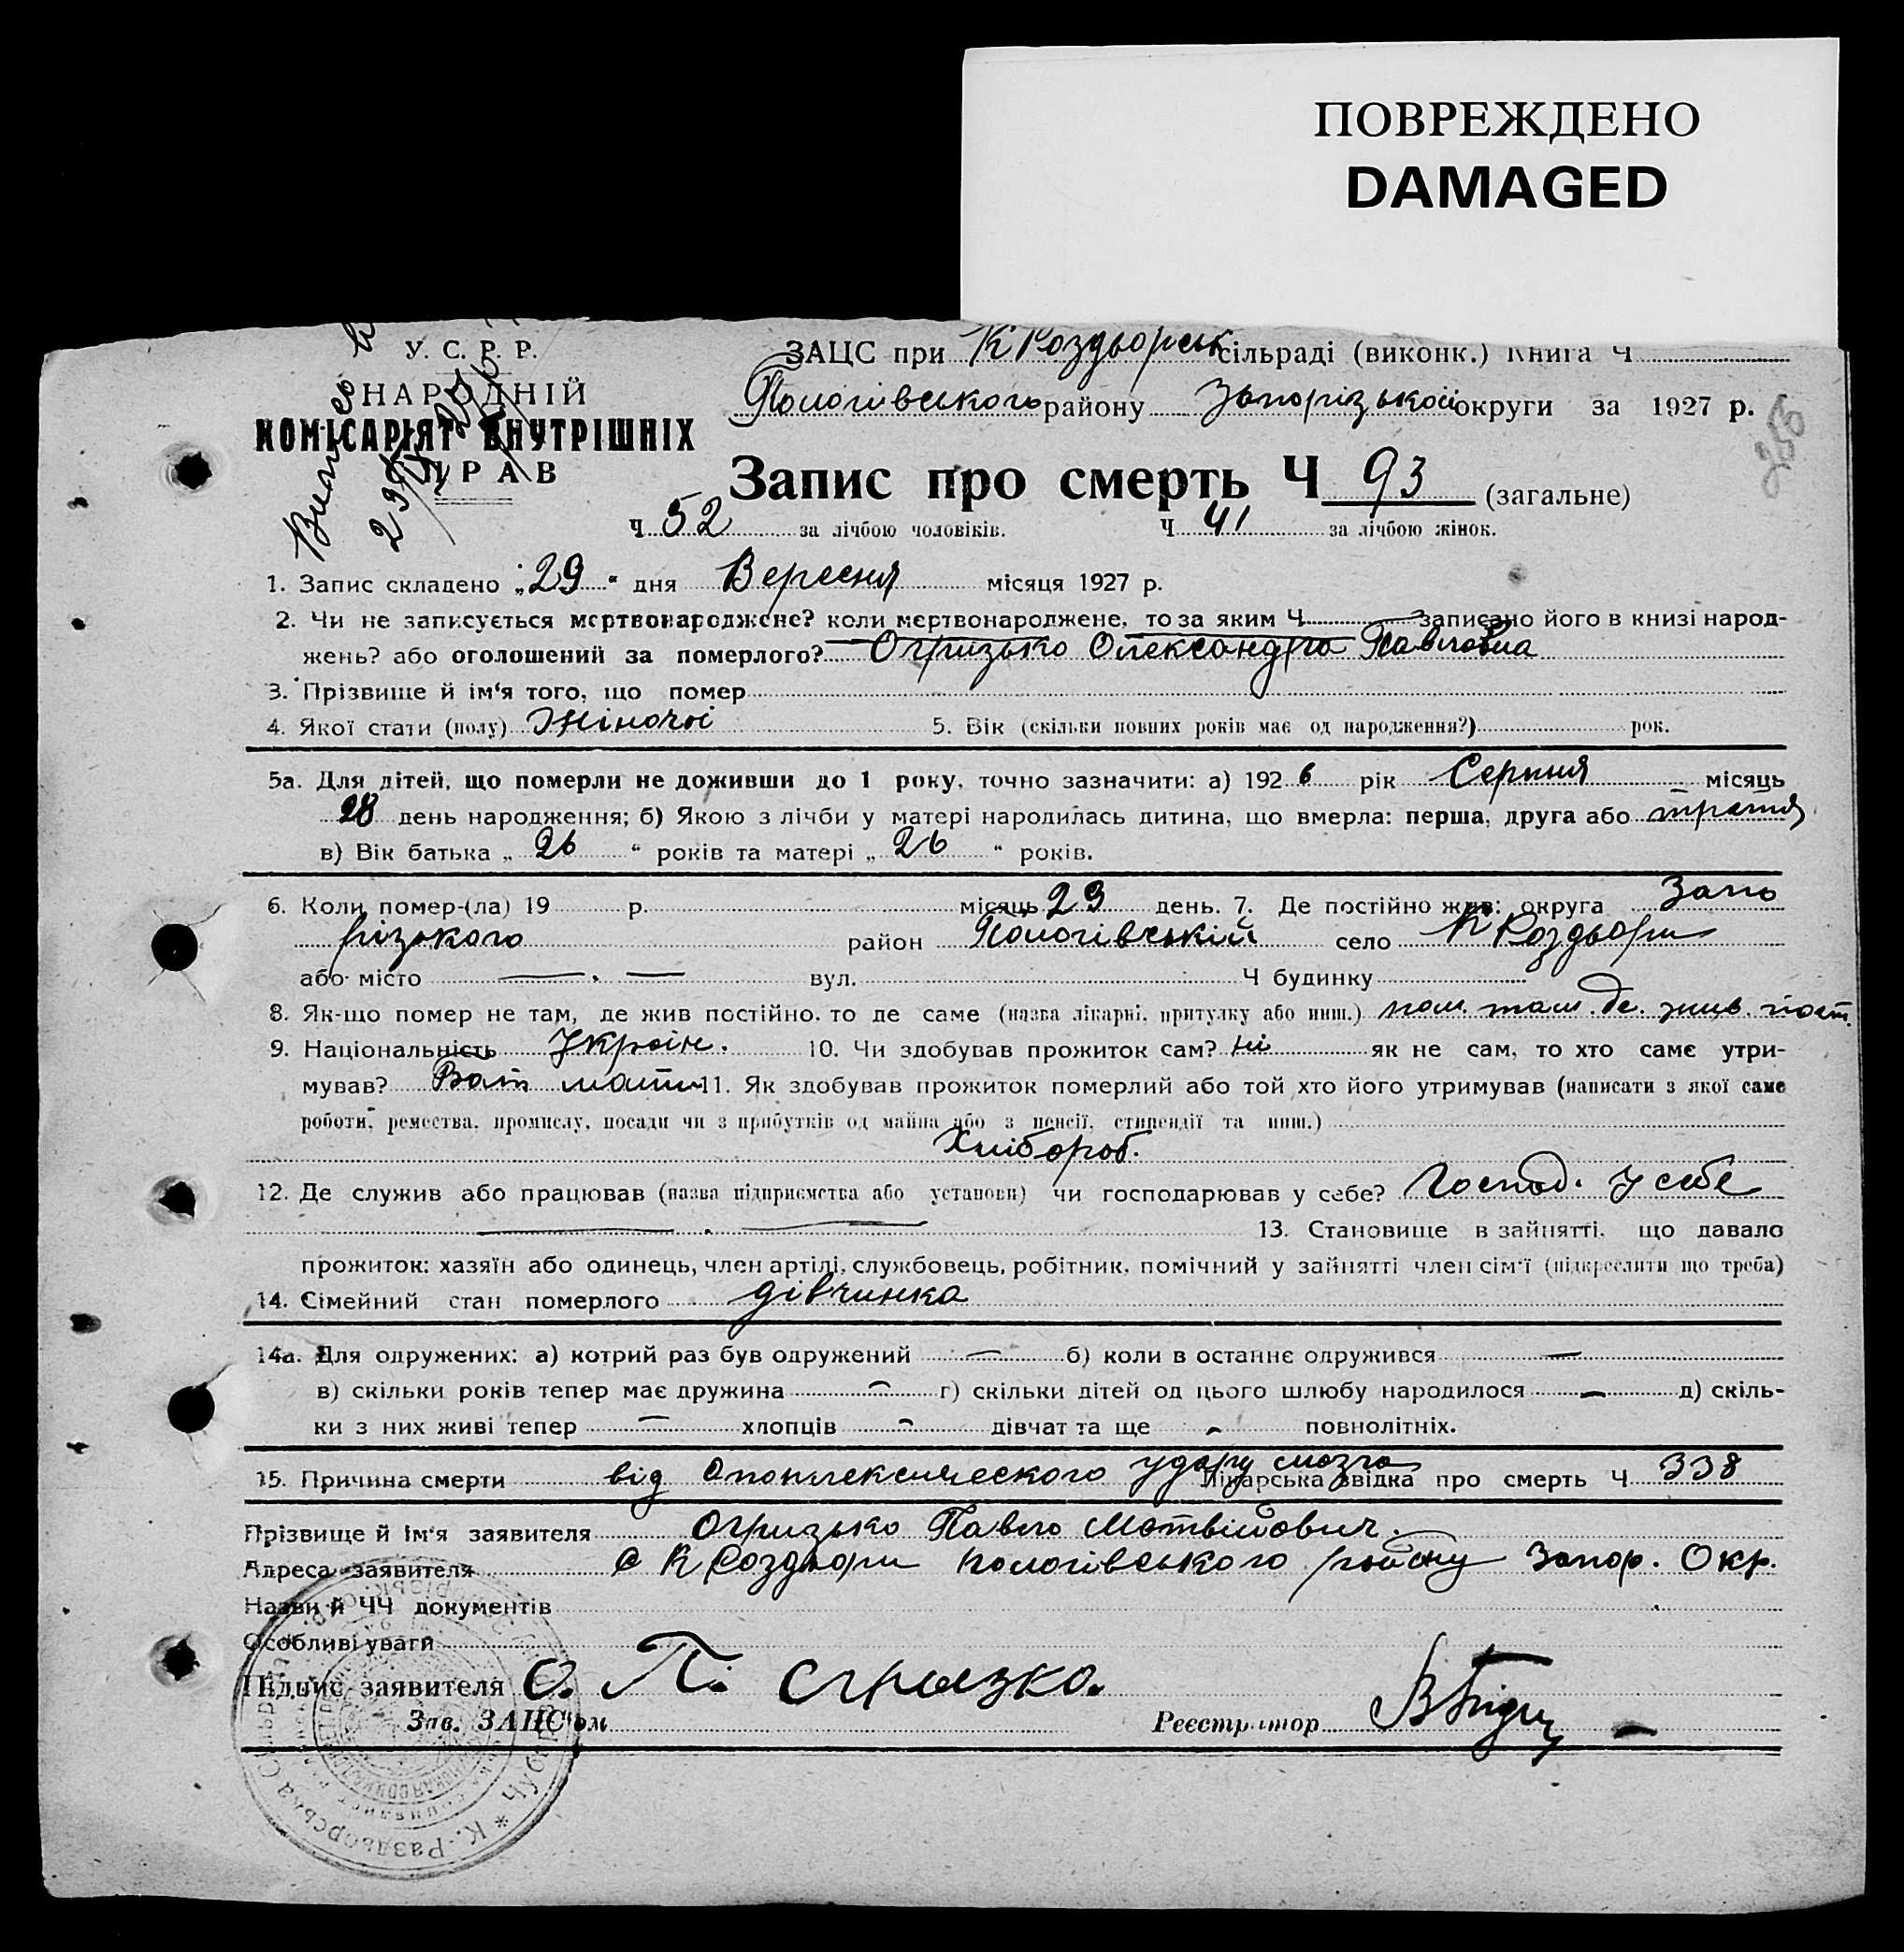 ПОВРЕЖДЕНО
DAMAGED
У. С. Р. Р.
НАРОДНІЙ
КОМІСАРІЯТ ВНУТРІШНІХ
ПРАВ
ЗАЦС при К Роздьорськ сільраді (виконк.) Книга Ч
Пологівського району Запорізької округи за 1927 р.
Запис про смерть Ч 93 (загальне)
Ч 52 за лічбою чоловіків. Ч 41 за лічбою жінок.
1. Запис складено „29“ дня Вересня місяця 1927 р.
2. Чи не записується мертвонароджене? коли мертвонароджене, то за яким Ч записано його в книзі народ-
жень? або оголошений за померлого? Огризько Олександра Павловна
3. Прізвище й ім'я того, що помер
4. Якої стати (полу) Жіночої 5. Вік (скільки повних років має од народження?) рок.
5а. Для дітей, що померли не доживши до 1 року, точно зазначити: а) 1926 рік Серпня місяць
28 день народження; б) Якою з лічби у матері народилась дитина, що вмерла: перша, друга або третя
в) Вік батька „26“ років та матері „26“ років.
6. Коли помер-(ла) 19 р. місяць 29 день. 7. Де постійно жив: округа Запо
різького район Пологівський село К Роздьори
або місто — . — вул. Ч будинку
8. Як-що помер не там, де жив постійно, то де саме (назва лікарні, притулку або инш.) пом. там. де. жив. пост.
9. Національність Україн. 10. Чи здобував прожиток сам? ні як не сам, то хто саме утри-
мував? Бат мати 11. Як здобував прожиток померлий або той хто його утримував (написати з якої саме
роботи, ремества, промислу, посади чи з прибутків од майна або з пенсії, стипендії та инш.)
Хлібороб.
12. Де служив або працював (назва підприємства або установи) чи господарював у себе? Господ. у себе
— . — 13. Становище в зайнятті, що давало
прожиток: хазяїн або одинець, член артілі, службовець, робітник, помічний у зайнятті член сім'ї (підкреслити що треба)
14. Сімейний стан померлого дівчинка
14а. Для одружених: а) котрий раз був одружений — б) коли в останнє одружився —
в) скільки років тепер має дружина — г) скільки дітей од цього шлюбу народилося — д) скіль-
ки з них живі тепер — хлопців — дівчат та ще - повнолітніх.
15. Причина смерти від Апоплексического удару мозга Лікарська звідка про смерть Ч 338
Прізвище й ім'я заявителя Огризько Павло Матвійович.
Адреса заявителя с К Роздьори Пологівського району Запор. Окр.
Назви й ЧЧ документів
Особливі уваги
Підпис заявителя О. П. Огризко.
Зав. ЗАЦС'ом Реєстратор